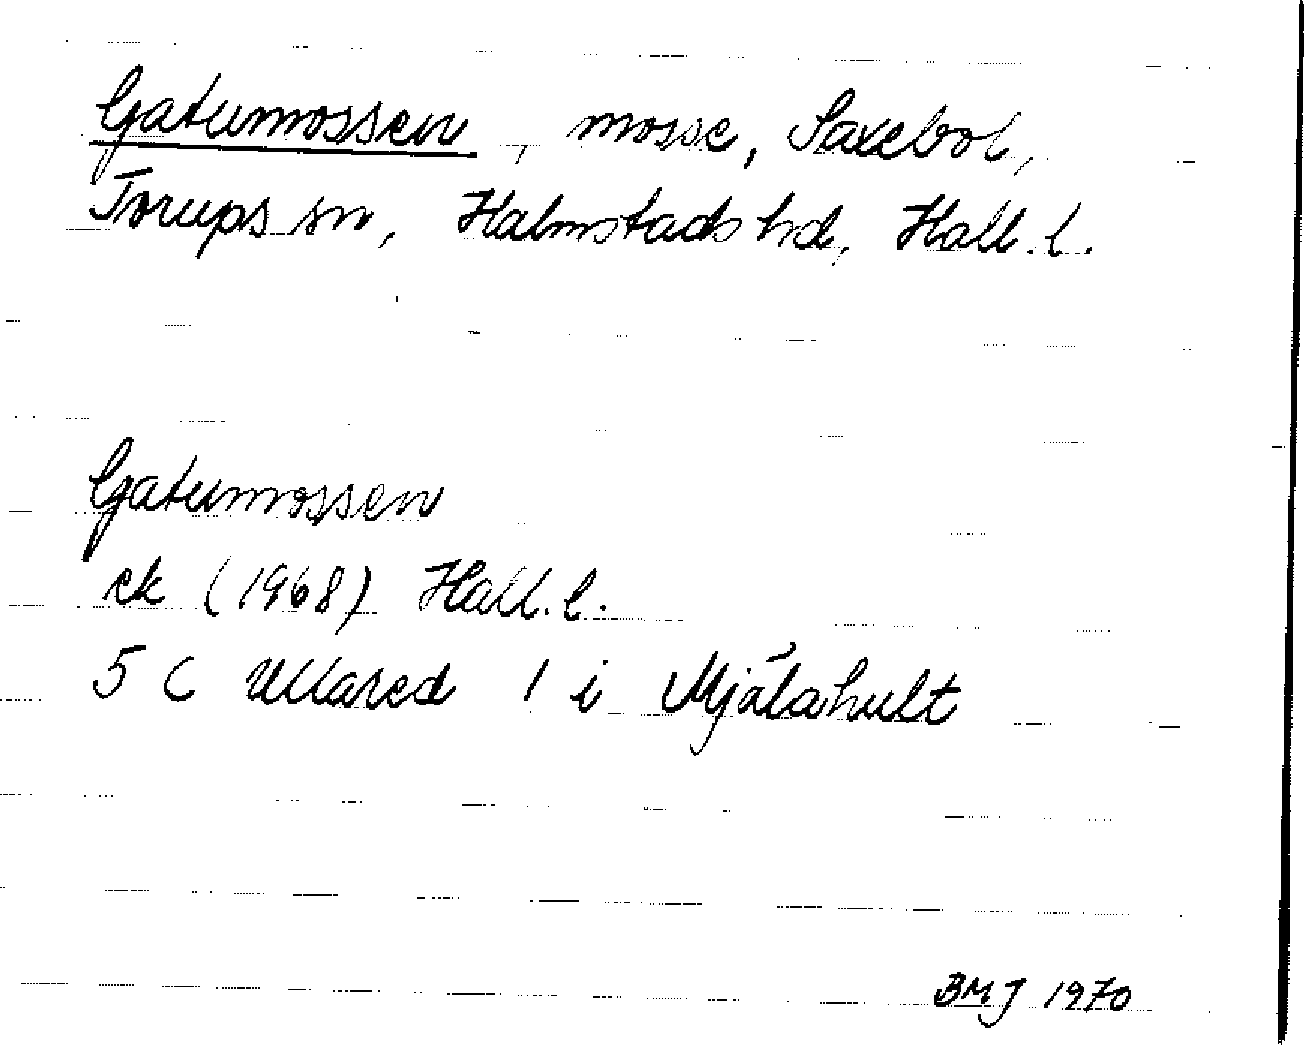 Gatumossen, mosse, Saxebol,
Torups sn, Halmstads hd, Hall. l.
Gatumossen
ek (1968) Hall. l.
5 C Ullared 1 i Mjälahult
BMJ 1970